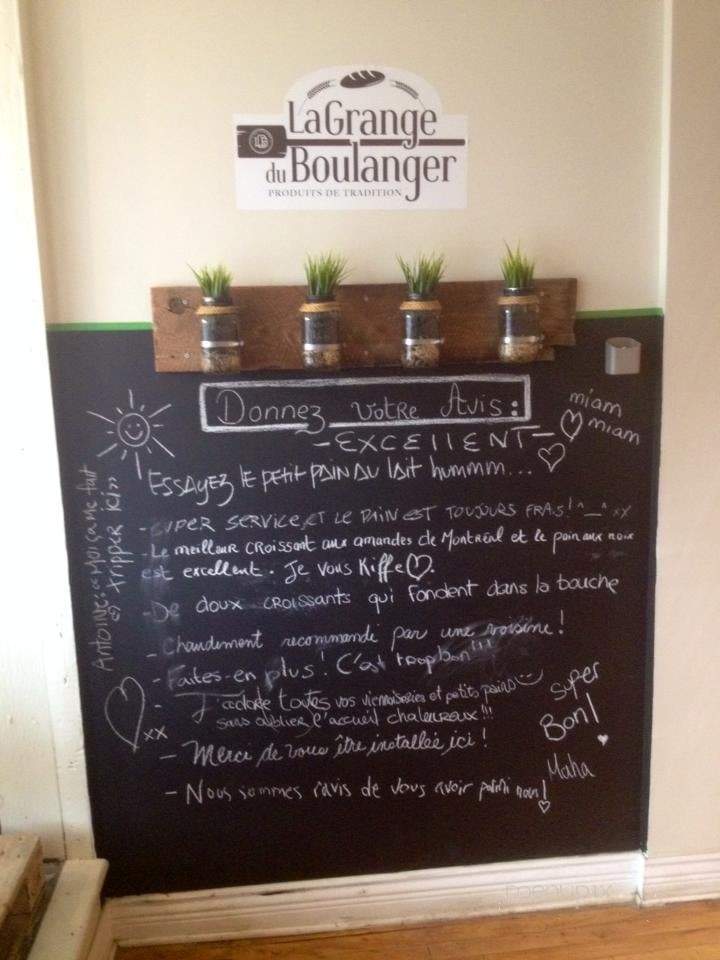 LaGrange
du Boulanger
PRODUITS DE TRADITION
Donnez votre Avis:
- EXCEllENT -
miam
miam
ESSAYEZ LE PETIT PAIN AU lAIT hummm...
- SUPER SERVICE, ET LE PAIN EST TOUJOURS FRAIS! ^_^ xx
- Le meilleur croissant aux amandes de Montréal et le pain aux noix
est excellent. Je vous Kiffe ♡.
- De doux croissants qui fondent dans la bouche
- Chaudement recommandé par une voisine!
- Faites-en plus! C'est trop bon!!!
- J'adore toutes vos viennoiseries et petits pains
sans oublier l'accueil chaleureux!!!
- Merci de vous être installée ici!
- Nous sommes ravis de vous avoir parmi nous!
Antoine: "Moi ça me fait
tripper ici"
xx
Super
Bon!
Maha